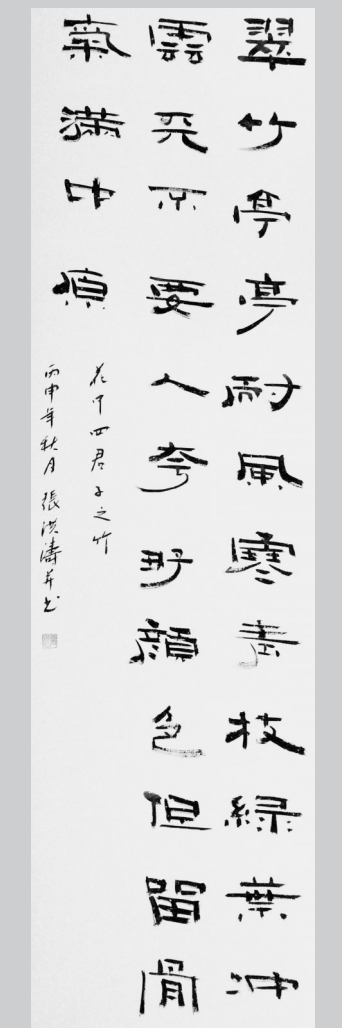 翠竹亭亭耐風寒青枝綠葉冲
雲天不要人夸好顔色但留骨
氣滿中原
花中四君子之竹
丙申年秋月張洪濤并書